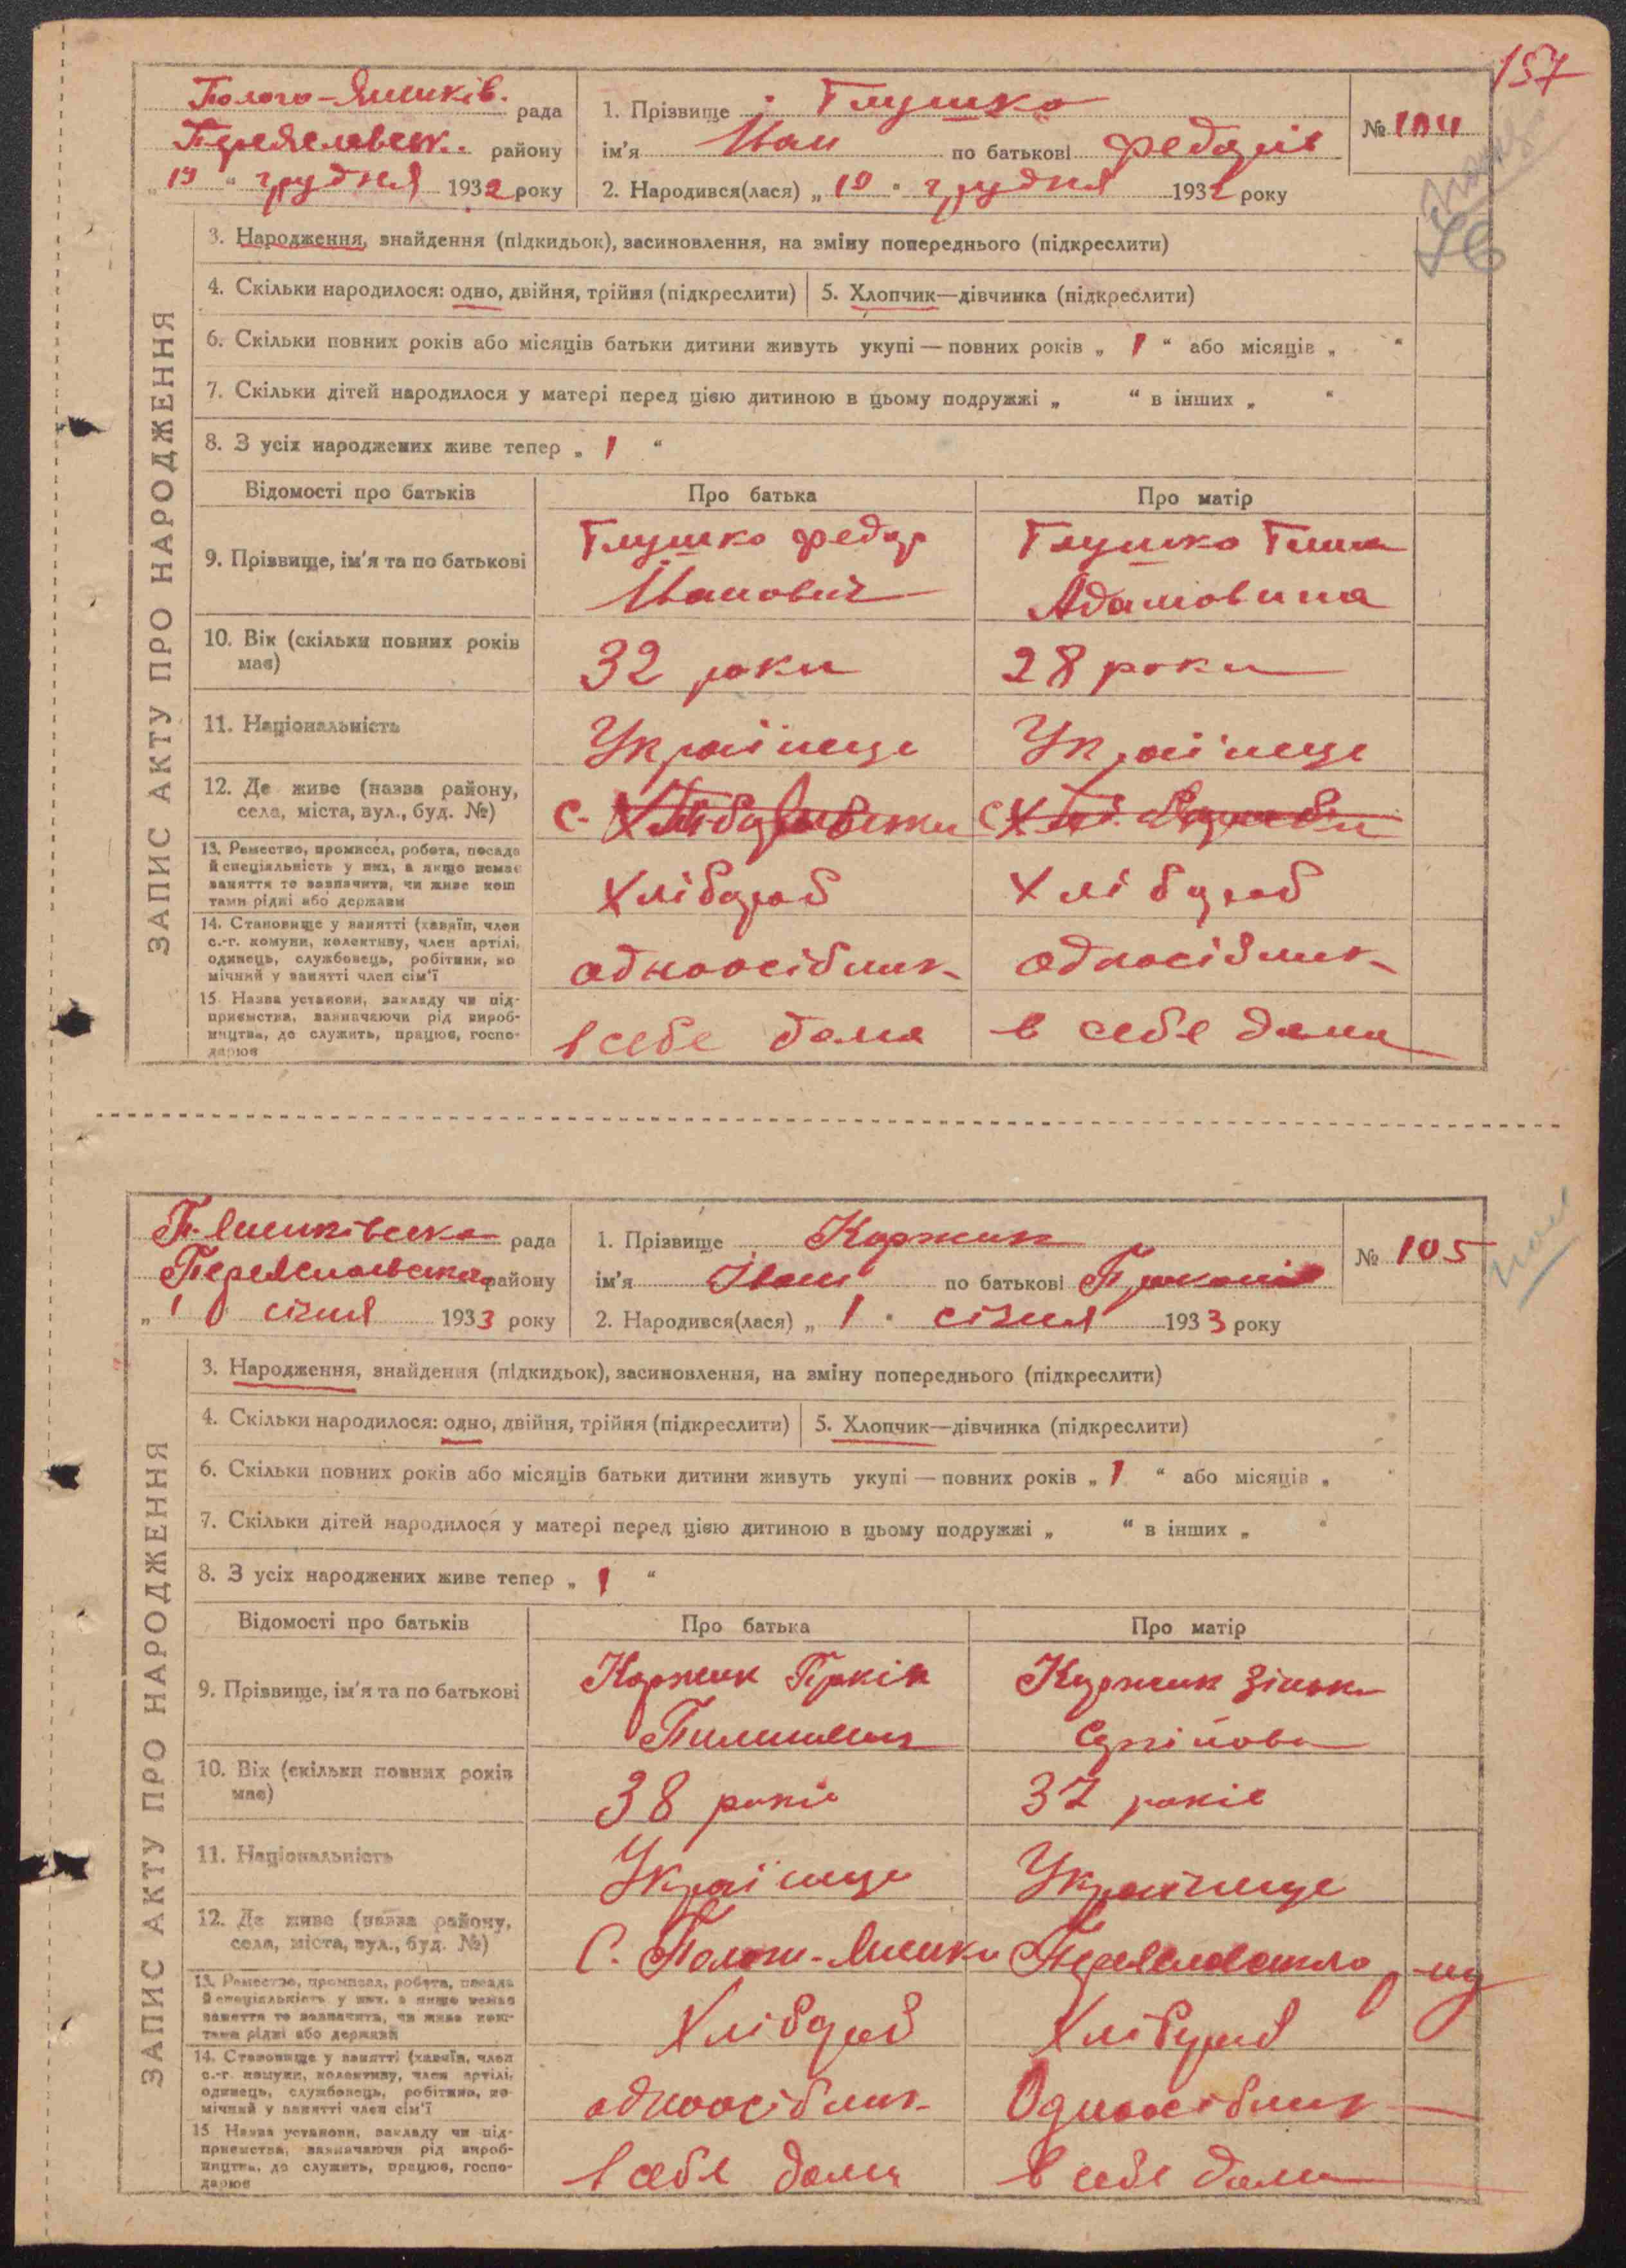 157
Полого-Яненків. рада
Переяславськ. району
„19“ грудня 1932 року
1. Прізвище Глушко
ім'я Иван по батькові Федорів
№ 104
2. Народився(лася) „10“ грудня 1932 року
ЗАПИС АКТУ ПРО НАРОДЖЕННЯ
3. Народження, знайдення (підкидьок), засиновлення, на зміну попереднього (підкреслити)
4. Скільки народилося: одно, двійня, трійня (підкреслити)
5. Хлопчик—дівчинка (підкреслити)
6. Скільки повних років або місяців батьки дитини живуть укупі — повних років „ 1 “ або місяців „ “
7. Скільки дітей народилося у матері перед цією дитиною в цьому подружжі „ “ в інших „ “
8. З усіх народжених живе тепер „ 1 “
Відомості про батьків
Про батька
Про матір
9. Прізвище, ім'я та по батькові
Глушко Федор
Иванович
Глушко
Адамовина
10. Вік (скільки повних років
має)
32 роки
28 роки
11. Національність
Українце
Українце
12. Де живе (назва району,
села, міста, вул., буд. №)
с.
с
13. Ремество, промисел, робота, посада
й спеціальність у них, а якщо немає
заняття то зазначити, чи живе кош
тами рідні або держави
Хлібороб
Хлібороб
14. Становище у занятті (хазяїн, член
с.-г. комуни, колективу, член артілі,
одинець, службовець, робітник, по
мічний у занятті член сім'ї
одноосібник
одноосібник
15 Назва установи, закладу чи під-
приємства, зазначаючи рід вироб-
ництва, де служить, працює, госпо-
дарює
в себе дома
в себе дома
П. Яненківська рада
Переяславська району
„1“ січня 1933 року
1. Прізвище Коржик
ім'я Іван по батькові
№ 105
2. Народився(лася) „1“ січня 1933 року
ЗАПИС АКТУ ПРО НАРОДЖЕННЯ
3. Народження, знайдення (підкидьок), засиновлення, на зміну попереднього (підкреслити)
4. Скільки народилося: одно, двійня, трійня (підкреслити)
5. Хлопчик—дівчинка (підкреслити)
6. Скільки повних років або місяців батьки дитини живуть укупі — повних років „ 1 “ або місяців „ “
7. Скільки дітей народилося у матері перед цією дитиною в цьому подружжі „ “ в інших „ “
8. З усіх народжених живе тепер „ 1 “
Відомості про батьків
Про батька
Про матір
9. Прізвище, ім'я та по батькові
Коржик
Пилипович
Коржик Зінька
Сергійовна
10. Вік (скільки повних років
має)
38 років
37 років
11. Національність
Українце
Українце
12. Де живе (назва району,
села, міста, вул., буд. №)
С. Полого-Яненки Переяславського р-ну
13. Ремество, промисел, робота, посада
й спеціальність у них, а якщо немає
заняття то зазначити, чи живе кош-
тами рідні або держави
Хлібороб
Хлібороб
14. Становище у занятті (хазяїн, член
с.-г. комуни, колективу, член артілі,
одинець, службовець, робітник, по-
мічний у занятті член сім'ї
одноосібник
Одноосібник
15 Назва установи, закладу чи під-
приємства, зазначаючи рід вироб-
ництва, де служить, працює, госпо-
дарює
в себе дома
в себе дома